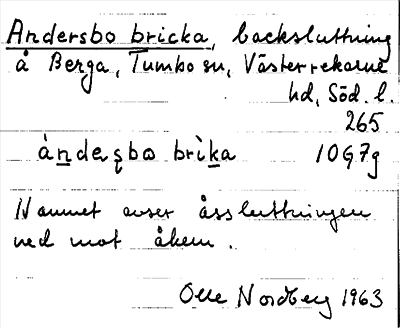 Andersbo bricka, backsluttning
å Berga, Tumbo sn, Västerrekarne
hd, Söd. l.
265
àndeʂbo brìka 10G7g
Namnet avser åssluttningen
ned mot åkern.
Olle Nordberg 1963